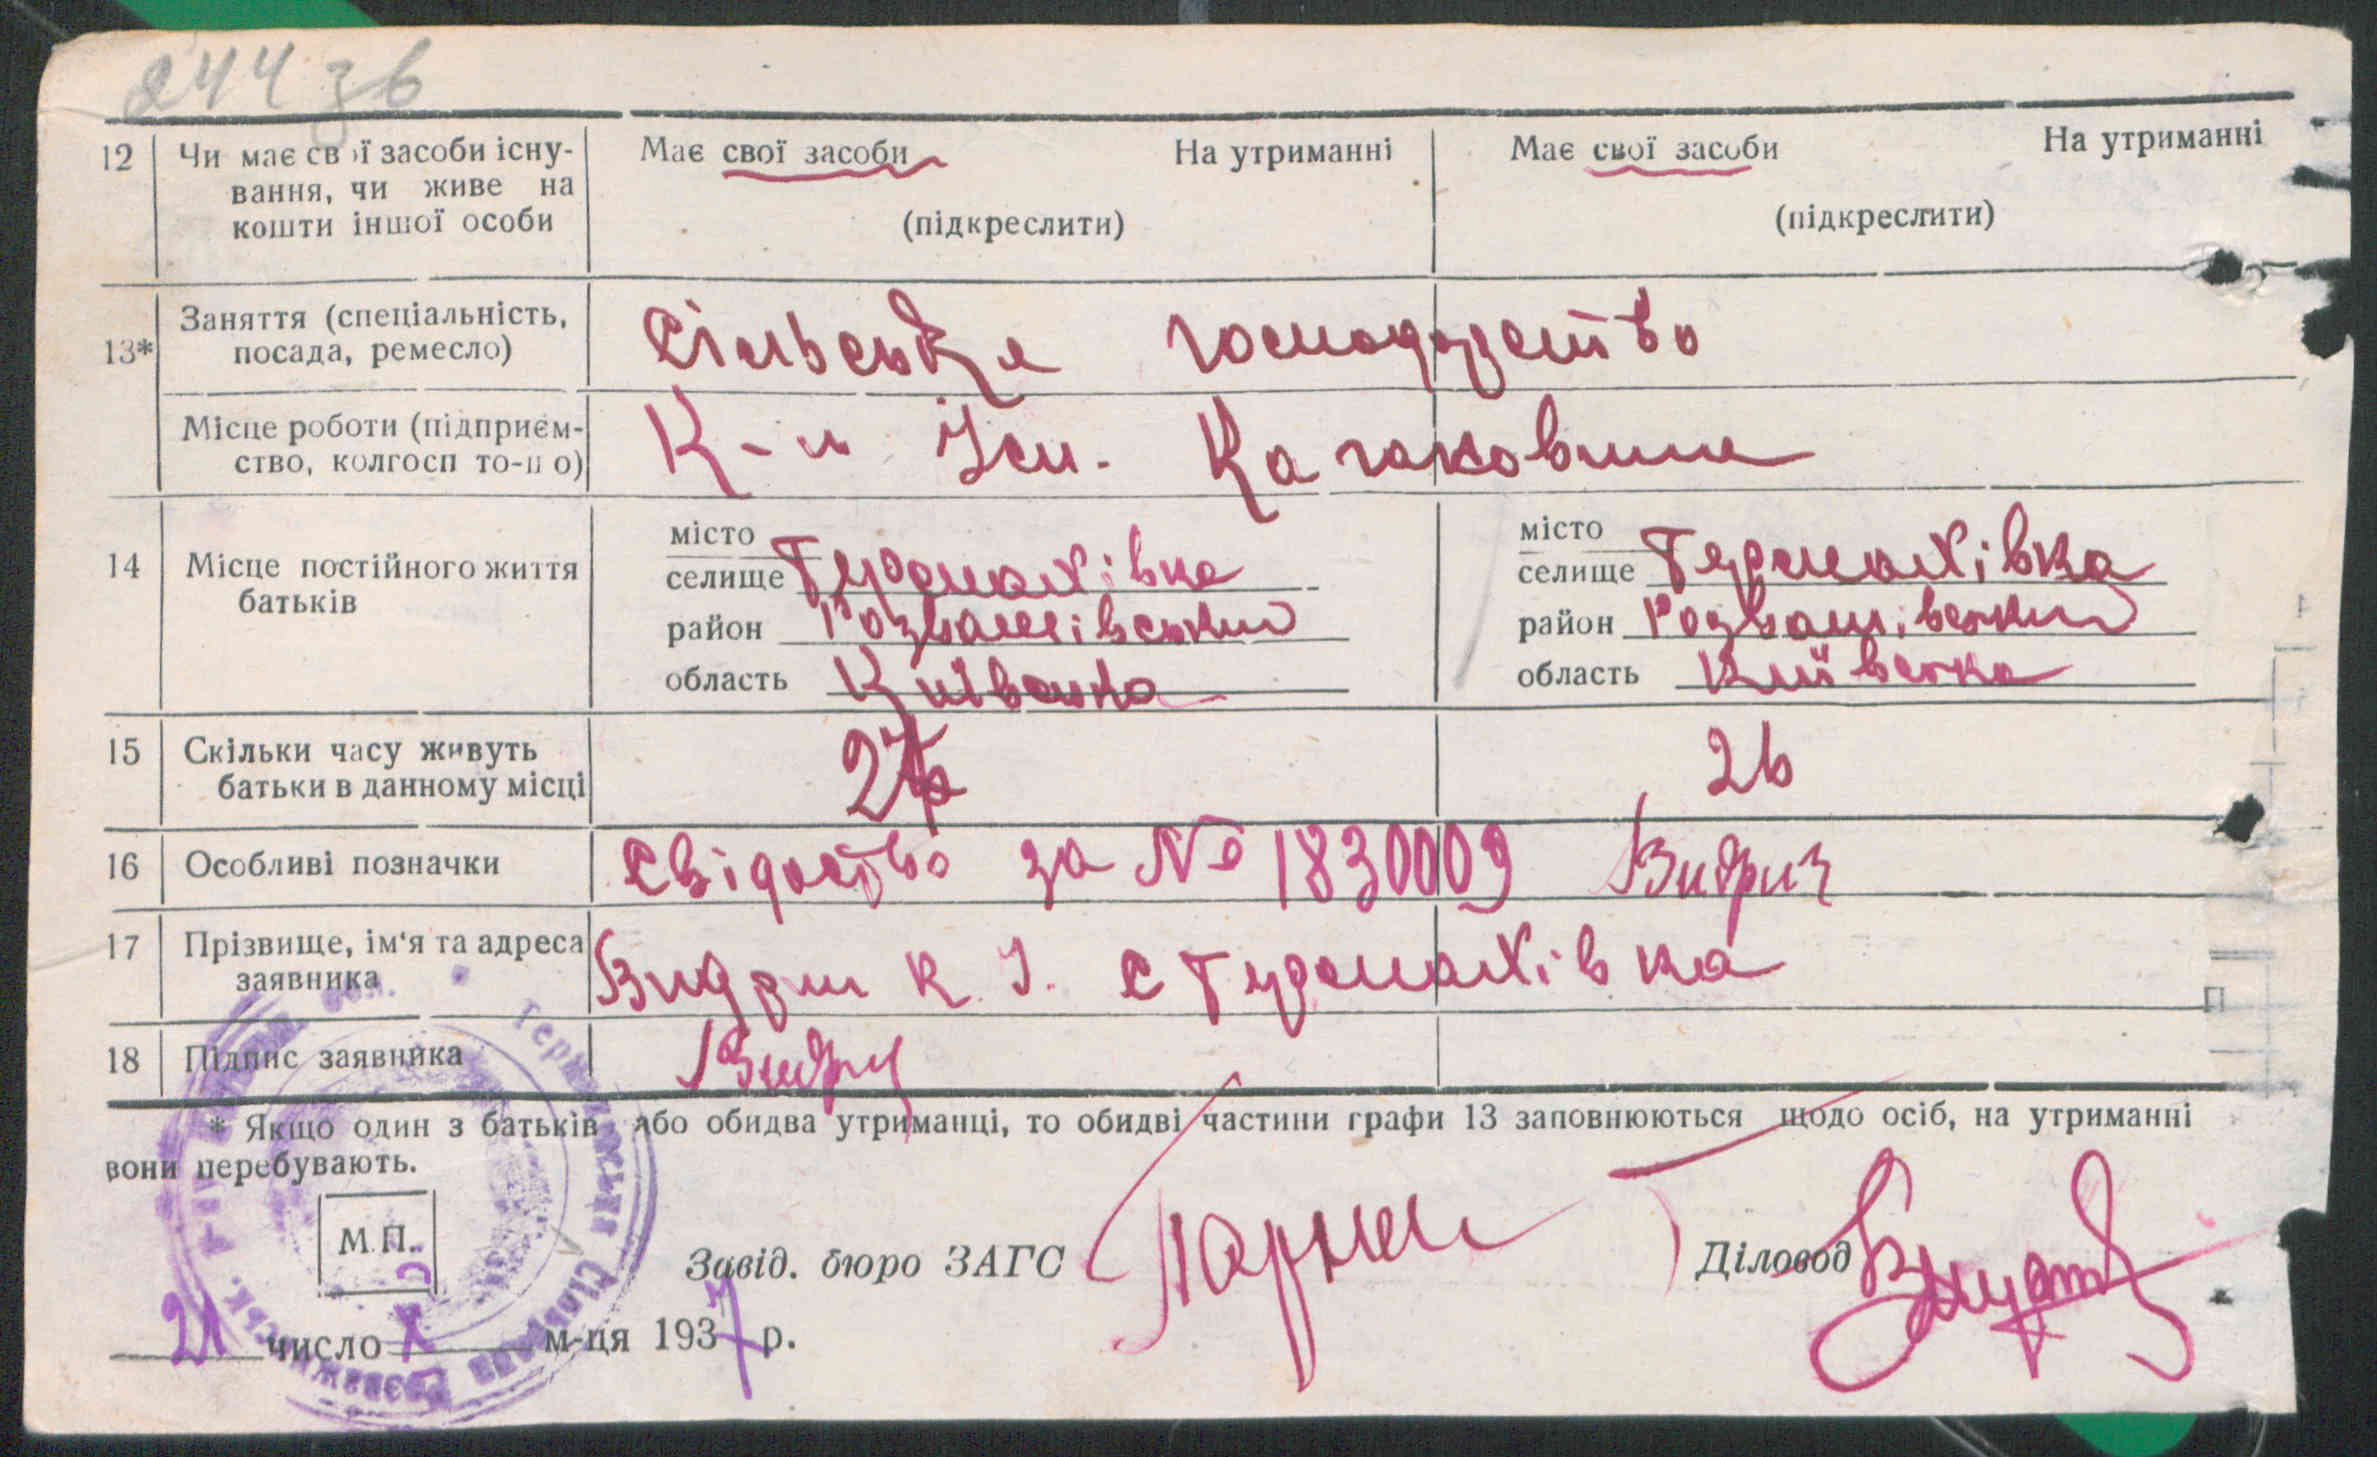 244 зв
12 Чи має свої засоби існу- Має свої засоби На утриманні Має свої засоби На утриманні
вання, чи живе на
кошти іншої особи (підкреслити) (підкреслити)
13* Заняття (спеціальність, Сільське господарство
посада, ремесло)
Місце роботи (підприєм- К-п Ім. Кагановича
ство, колгосп то-що)
14 Місце постійного життя батьків
місто місто
селище Термахівка селище Термахівка
район Розважівський район Розважівський
область Київська область Київська
15 Скільки часу живуть 26
батьки в данному місці
16 Особливі позначки Свідоство за № 1830009 Видрич
17 Прізвище, ім'я та адреса Видрич К. І. с Термахівка
заявника
18 Підпис заявника Видрич
* Якщо один з батьків або обидва утриманці, то обидві частини графи 13 заповнюються щодо осіб, на утриманні
вони перебувають.
М.П.
Завід. бюро ЗАГС Діловод
21 число X м-ця 1937 р.